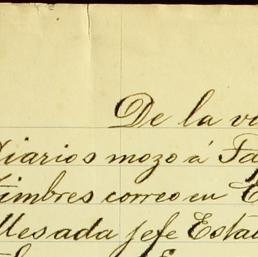 De la
Diarios mozo á
Timbres correo en
Mesada jefe